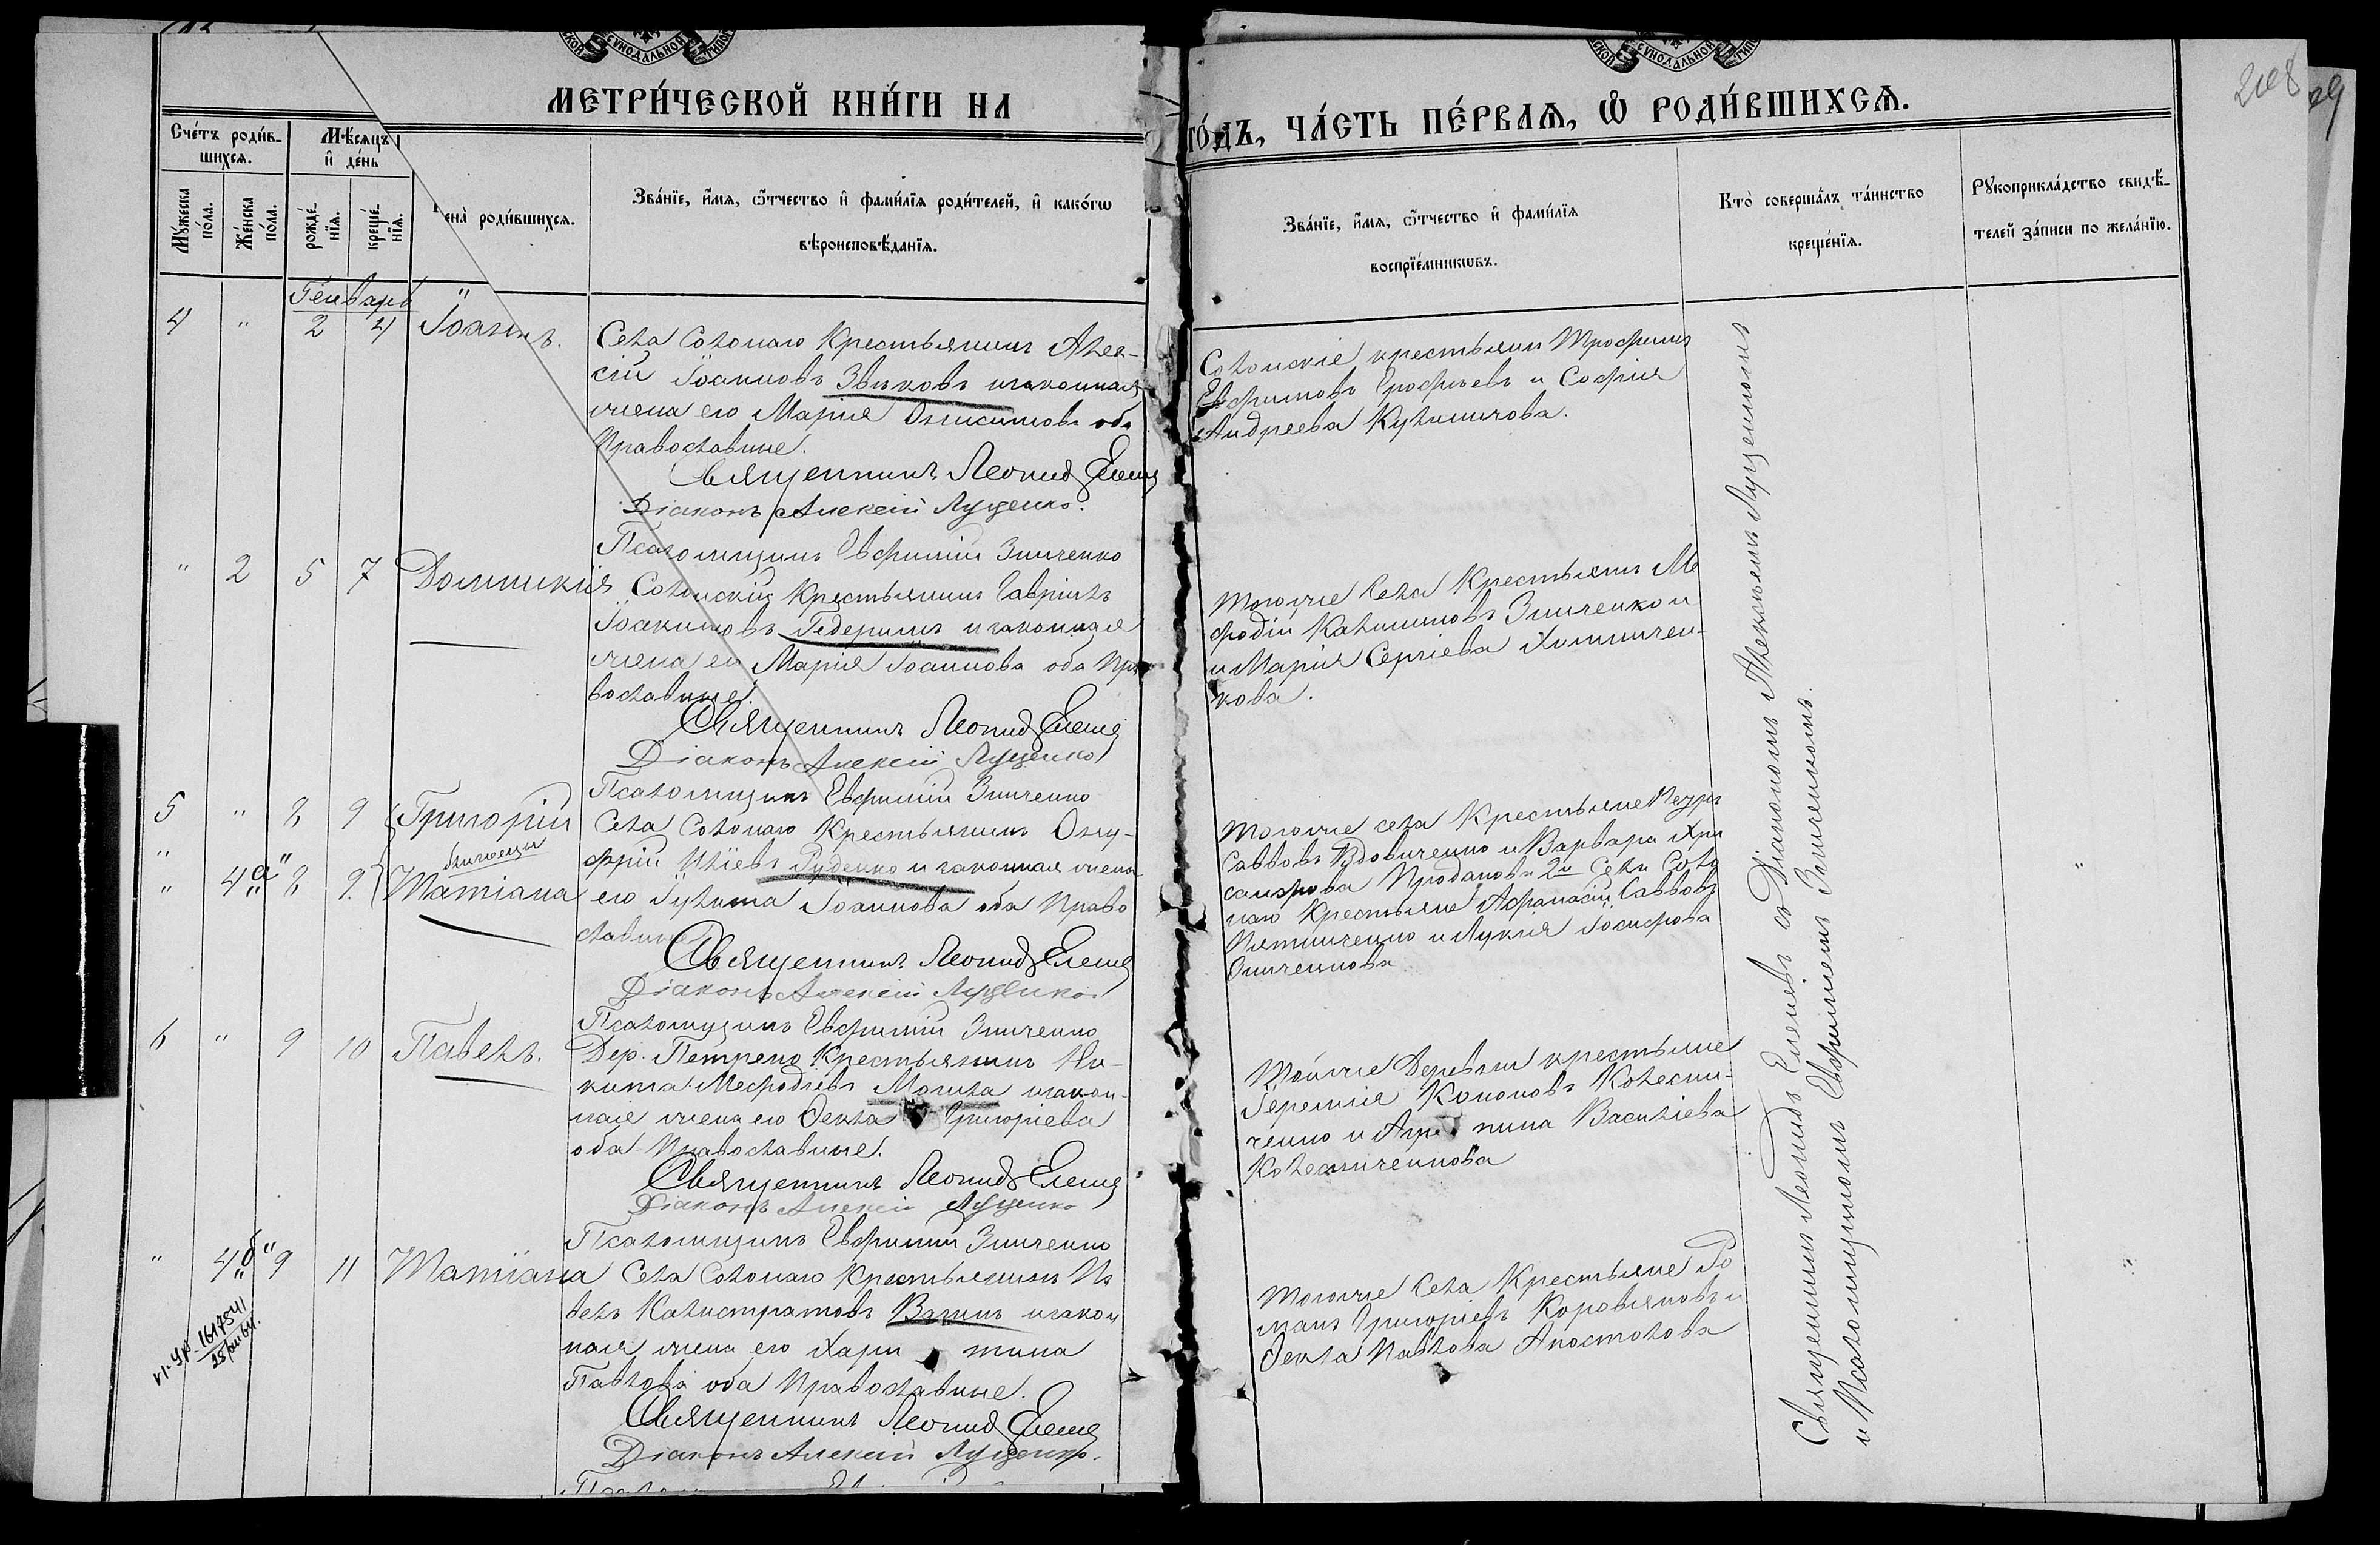 МЕТРИ́ЧЕСКОЙ КНИ́ГИ НА
ГО́ДЪ, ЧА́СТЬ ПЕ́РВАЯ, Ѿ РОДИ́ВШИХСЯ.
208
Счетъ роди́в-
шихся.
Мѣсяцъ
и҆ де́нь
Мꙋжеска
по́ла.
Же́нска
по́ла.
рожде́-
нїя.
креще́-
нїя.
ена̀ роди́вшихся.
Зва́нїе, и҆́мя, ѻ҆́тчество и҆ фами́лїя роди́телей, и҆ како́гѡ
вѣроисповѣ́данїя.
Зва́нїе, и҆́мя, ѻ҆́тчество и҆ фами́лїя
воспрїе́мникѡвъ.
Кто̀ соверша́лъ та́инство
креще́нїя.
Рꙋкоприкла́дство свидѣ́-
телей за́писи по жела́нїю.
Генварь
4 " 2 4 Іоаннъ.
Села Солонаго Крестьянинъ Алек-
сій Іоанновъ Звѣковъ и законная
жена его Марія Онисимова оба
Православные.
Священникъ Леонид Елене
Діаконъ Алексій Луценко.
Псаломщикъ Евфимій Зинченко
Солонскіе крестьяне Трофимъ
Евфимовъ Ерофѣевъ и Софія
Андреева Кулиничова.
" 2 5 7 Домникія
Солонскій Крестьянинъ Гавріилъ
Іоакимовъ Гедеримъ и законная
жена его Марія Іоаннова оба Пра
вославные.
Священникъ Леонид Елене
Діаконъ Алексій Луценко
Псаломщикъ Евфимій Зинченко
Тогоже Села Крестьяне Ме
фодій Калинновъ Зинченко и
и Марія Сергіева Химичен-
кова.
5 " 8 9 Григорій
близнецы
" 4а" 8 9 Татіана
Села Солонаго Крестьянинъ Ону-
фрій Иліевъ Руденко и законная жена
его Іулита Іоаннова оба Право
славные
Священникъ Леонид Елене
Діаконъ Алексій Луценко
Псаломщикъ Евфимій Зинченко
Тогоже села Крестьяне Петръ
Саввовъ Вдовиченко и Варвара Хри
санфова Проданова 2й Села Соло
наго Крестьяне Афанасій Саввовъ
Пятниченко и Лукія Іосифова
Онищенкова
6 " 9 10 Павелъ.
Дер. Петрено Крестьянинъ Ни-
кита Мефодіевъ Могила и закон-
ная жена его Фекла Григоріева
оба Православные.
Священникъ Леонид Елене
Діаконъ Алексій Луценко
Псаломщикъ Евфимій Зинченко
Тойже Деревни крестьяне
Іеремія Кононовъ Колесни-
ченко и Агрипина Василіева
Колесниченкова
" 4б" 9 11 Татіана
Села Солонаго Крестьянинъ Па
велъ Калистратовъ и закон
ная жена его Харитина
Павлова оба Православные.
Священникъ Леонид Елене
Діаконъ Алексій Луценко.
Тогоже Села Крестьяне Ро
манъ Григоріевъ Коровяковъ и
Фекла Павлова Апостолова
Священникъ Леонидъ Еленевъ съ Діакономъ Алексѣемъ Луценкомъ
и Псаломщикомъ Евфиміемъ Зинченкомъ.